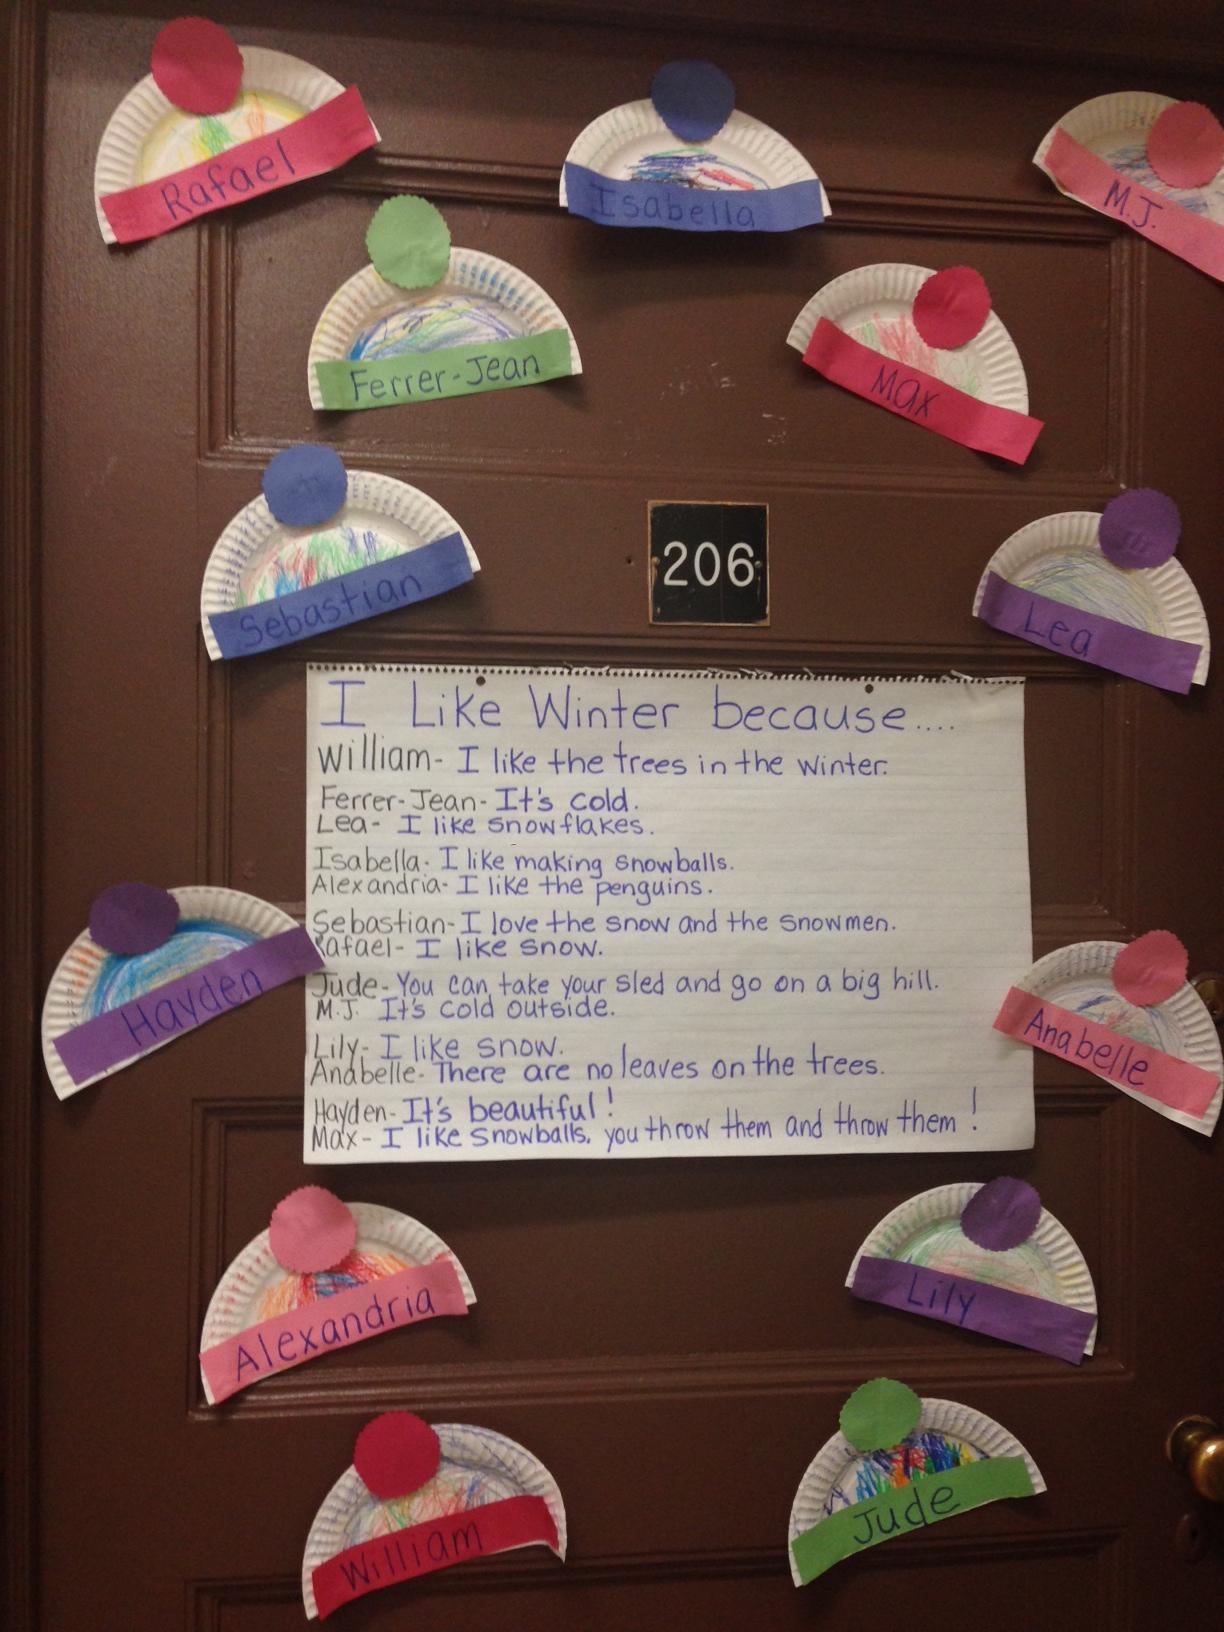 Rafael
Isabella
M.J.
Ferrer-Jean
Max
Sebastian
206
Lea
I Like Winter because....
William- I like the trees in the winter.
Ferrer-Jean- It's cold.
Lea- I like snowflakes.
Isabella- I like making snowballs.
Alexandria- I like the penguins.
Sebastian- I love the snow and the snowmen.
Rafael- I like snow.
Jude- You can take your sled and go on a big hill.
M.J. It's cold outside.
Lily- I like snow.
Anabelle- There are no leaves on the trees.
Hayden- It's beautiful!
Max- I like snowballs. you throw them and throw them!
Hayden
Anabelle
Alexandria
Lily
William
Jude